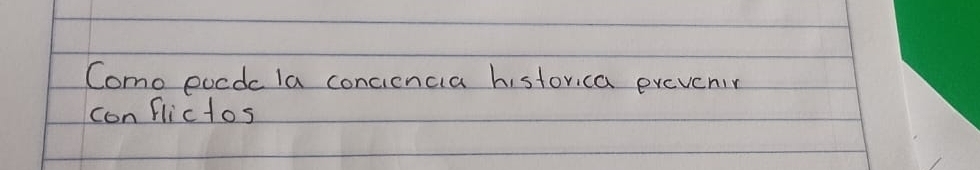 Como puede la conciencia historica prevenir
conflictos